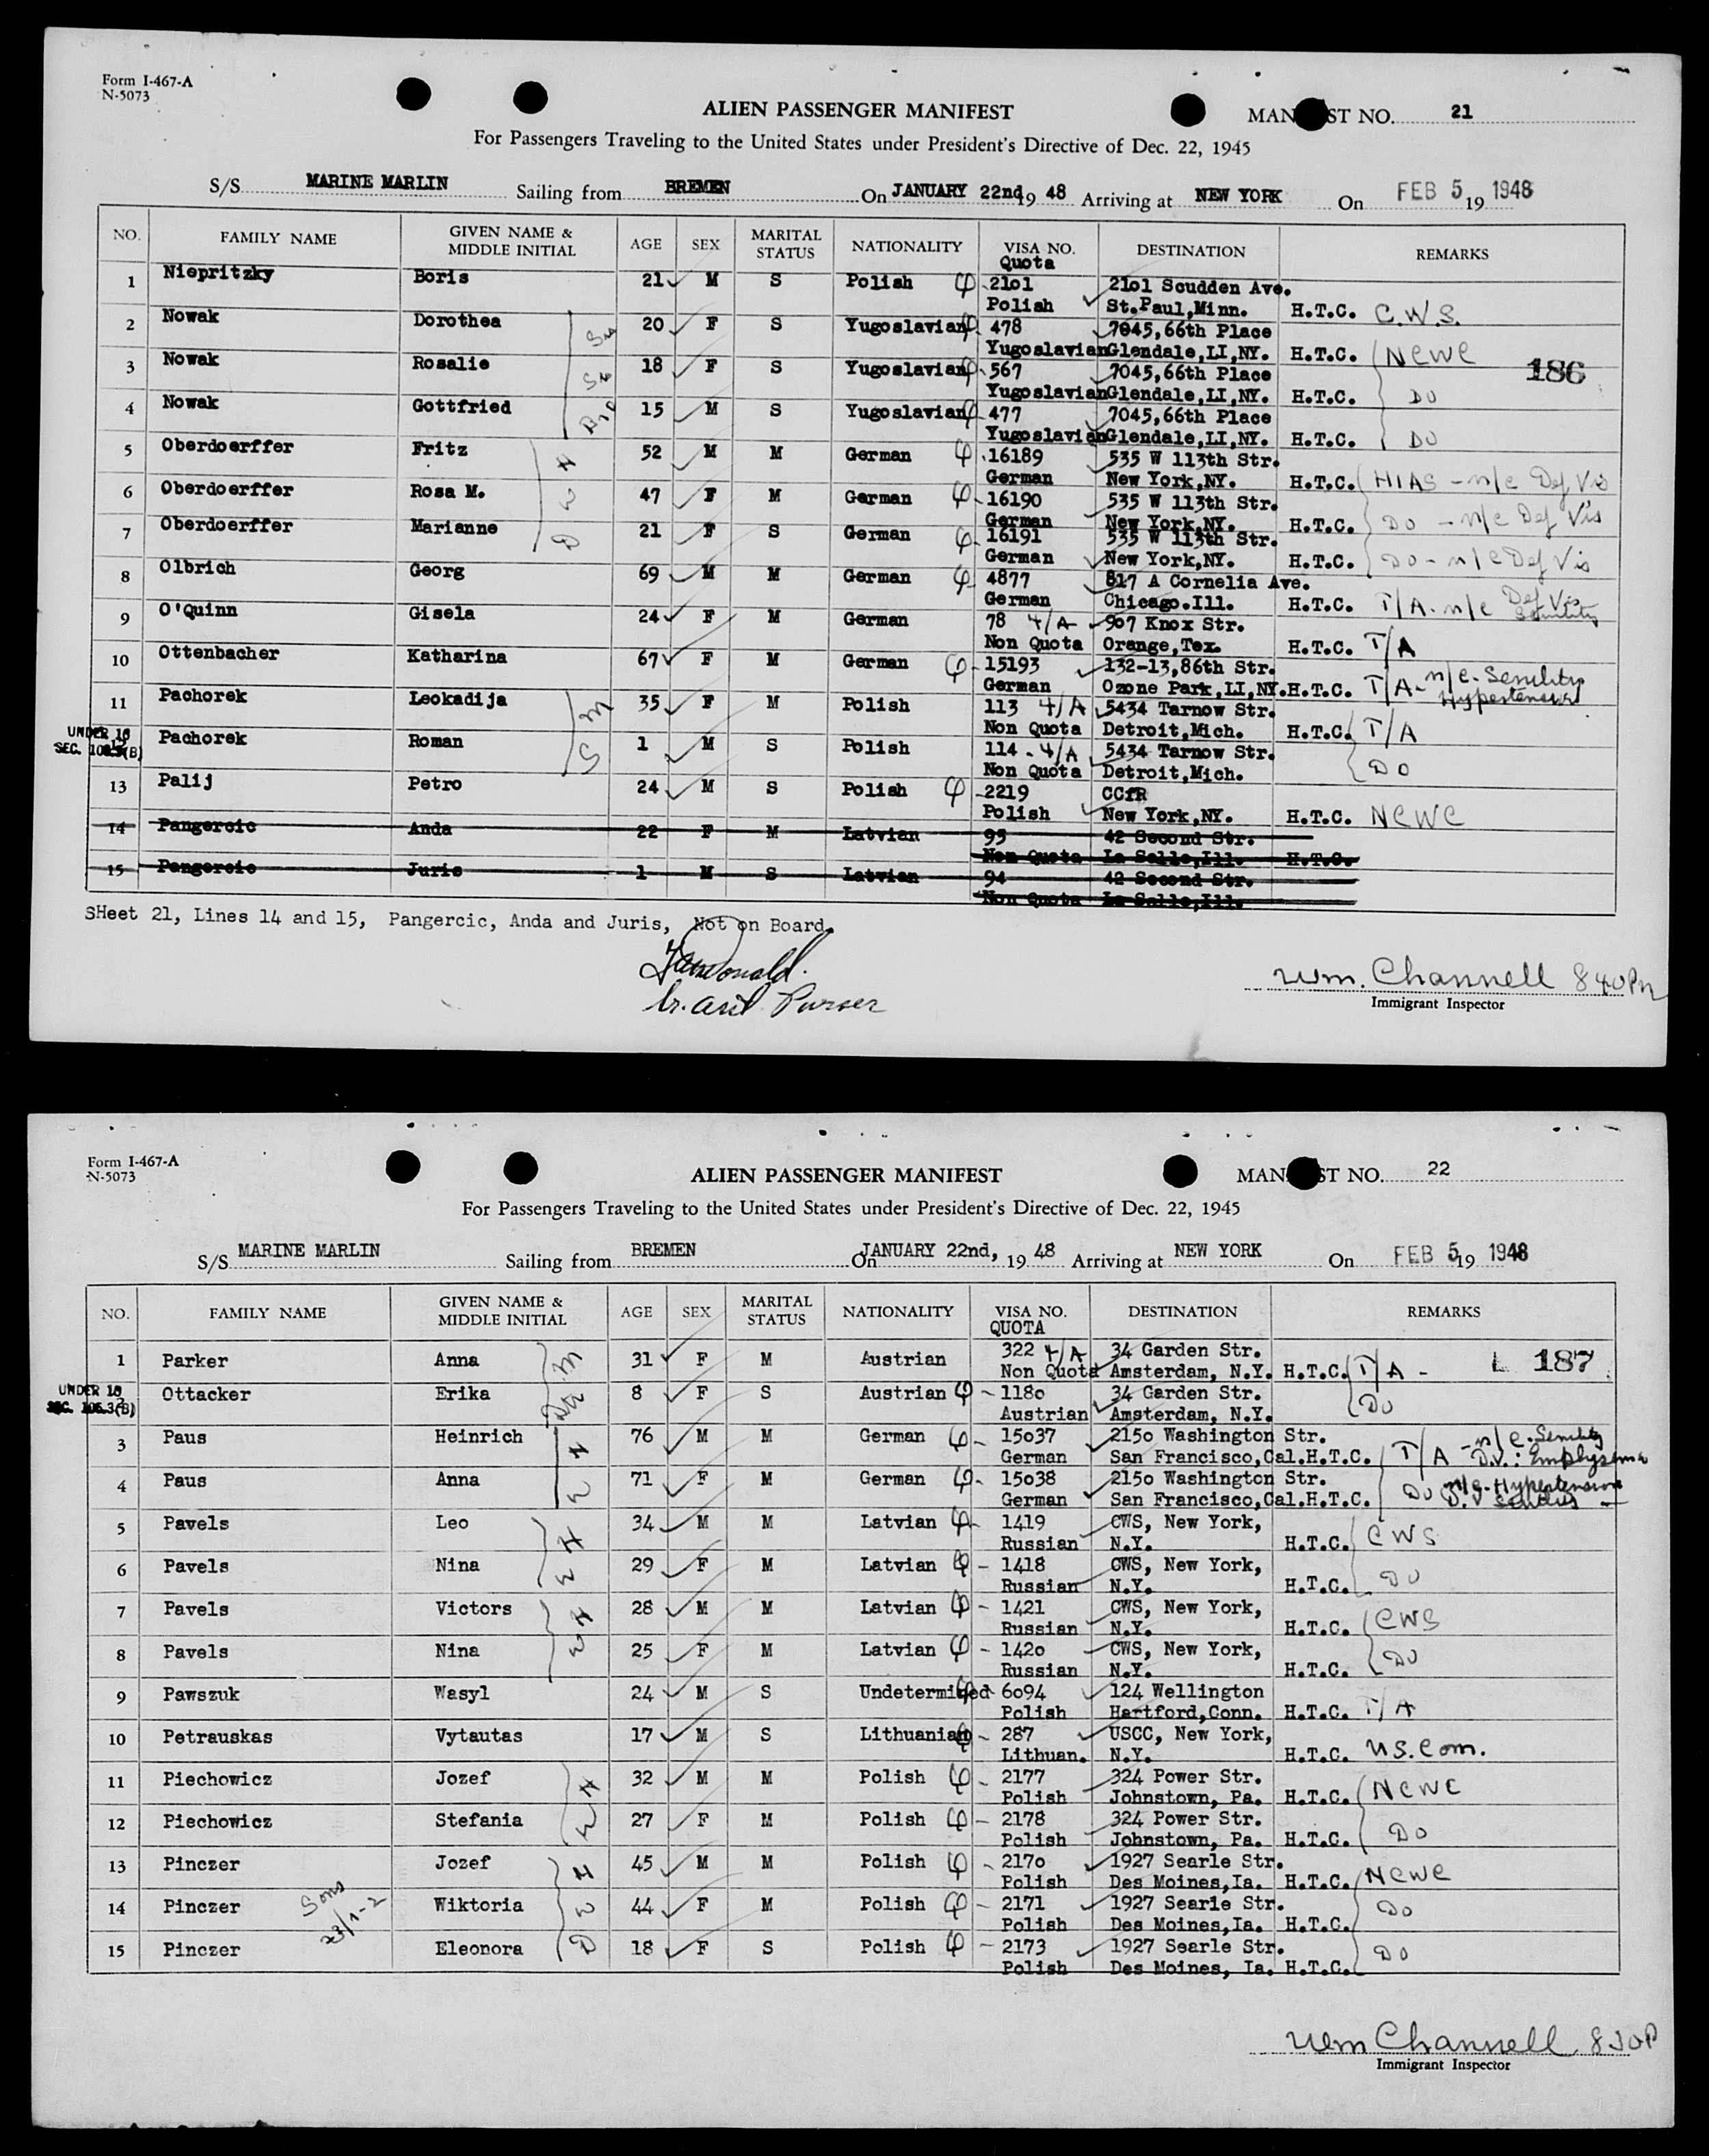 Form I-467-A
N-5073
ALIEN PASSENGER MANIFEST
MAN ST NO. 21
For Passengers Traveling to the United States under President's Directive of Dec. 22, 1945
S/S MARINE MARLIN Sailing from BREMEN On JANUARY 22nd, 19 48 Arriving at NEW YORK On FEB 5 19 1948
NO. FAMILY NAME GIVEN NAME & MIDDLE INITIAL AGE SEX MARITAL STATUS NATIONALITY VISA NO. Quota DESTINATION REMARKS
1 Niepritzky Boris 21 M S Polish 2101 2101 Scudden Ave.
Polish St.Paul,Minn. H.T.C. C.W.S.
2 Nowak Dorothea 20 F S Yugoslavian 478 7045,66th Place
Yugoslavian Glendale,LI,NY. H.T.C. NCWC
186
3 Nowak Rosalie 18 F S Yugoslavian 567 7045,66th Place
Yugoslavian Glendale,LI,NY. H.T.C. DO
4 Nowak Gottfried 15 M S Yugoslavian 477 7045,66th Place
Yugoslavian Glendale,LI,NY. H.T.C. DO
5 Oberdoerffer Fritz H 52 M M German 16189 535 W 113th Str.
German New York,NY. H.T.C. HIAS - n/c Def Vis
6 Oberdoerffer Rosa M. W 47 F M German 16190 535 W 113th Str.
German New York,NY. H.T.C. DO - n/c Def Vis
7 Oberdoerffer Marianne D 21 F S German 16191 535 W 113th Str.
German New York,NY. H.T.C. DO - n/c Def Vis
8 Olbrich Georg 69 M M German 4877 817 A Cornelia Ave.
German Chicago.Ill. H.T.C. T/A. n/c Def Vis Senility
9 O'Quinn Gisela 24 F M German 78 4/A 907 Knox Str.
Non Quota Orange,Tex. H.T.C. T/A
10 Ottenbacher Katharina 67 F M German 15193 132-13,86th Str.
German Ozone Park,LI,NY. H.T.C. T/A - n/c. Senility Hypertension
11 Pachorek Leokadija M 35 F M Polish 113 4/A 5434 Tarnow Str.
Non Quota Detroit,Mich. H.T.C. T/A
UNDER 16
SEC. 105.3(B)
12 Pachorek Roman S 1 M S Polish 114 4/A 5434 Tarnow Str.
Non Quota Detroit,Mich. DO
13 Palij Petro 24 M S Polish 2219 CCfR
Polish New York,NY. H.T.C. NCWC
14 Pangercic Anda 22 F M Latvian 95 42 Second Str.
Non Quota La Salle,Ill. H.T.C.
15 Pangercic Juris 1 M S Latvian 94 42 Second Str.
Non Quota La Salle,Ill.
SHeet 21, Lines 14 and 15, Pangercic, Anda and Juris, Not on Board.
Purser
Wm. Channell 840Pm
Immigrant Inspector
Form I-467-A
N-5073
ALIEN PASSENGER MANIFEST
MAN ST NO. 22
For Passengers Traveling to the United States under President's Directive of Dec. 22, 1945
S/S MARINE MARLIN Sailing from BREMEN On JANUARY 22nd, 19 48 Arriving at NEW YORK On FEB 5 19 1948
NO. FAMILY NAME GIVEN NAME & MIDDLE INITIAL AGE SEX MARITAL STATUS NATIONALITY VISA NO. QUOTA DESTINATION REMARKS
1 Parker Anna M 31 F M Austrian 322 4/A 34 Garden Str.
Non Quota Amsterdam, N.Y. H.T.C. T/A - L 187
UNDER 16
SEC. 105.3(B)
2 Ottacker Erika Da 8 F S Austrian 1180 34 Garden Str.
Austrian Amsterdam, N.Y. DO
3 Paus Heinrich H 76 M M German 15037 2150 Washington Str.
German San Francisco,Cal. H.T.C. T/A - n/c. Senility D.V.: Emphysema
4 Paus Anna W 71 F M German 15038 2150 Washington Str.
German San Francisco,Cal. H.T.C. DO n/c. Hypertension
5 Pavels Leo H 34 M M Latvian 1419 CWS, New York,
Russian N.Y. H.T.C. CWS
6 Pavels Nina W 29 F M Latvian 1418 CWS, New York,
Russian N.Y. H.T.C. DO
7 Pavels Victors H 28 M M Latvian 1421 CWS, New York,
Russian N.Y. H.T.C. CWS
8 Pavels Nina W 25 F M Latvian 1420 CWS, New York,
Russian N.Y. H.T.C. DO
9 Pawszuk Wasyl 24 M S Undetermined 6094 124 Wellington
Polish Hartford,Conn. H.T.C. T/A
10 Petrauskas Vytautas 17 M S Lithuanian 287 USCC, New York,
Lithuan. N.Y. H.T.C. US. Com.
11 Piechowicz Jozef H 32 M M Polish 2177 324 Power Str.
Polish Johnstown, Pa. H.T.C. NCWC
12 Piechowicz Stefania W 27 F M Polish 2178 324 Power Str.
Polish Johnstown, Pa. H.T.C. DO
13 Pinczer Jozef H 45 M M Polish 2170 1927 Searle Str.
Polish Des Moines,Ia. H.T.C. NCWC
14 Pinczer Sons 23/1-2 Wiktoria W 44 F M Polish 2171 1927 Searle Str.
Polish Des Moines,Ia. H.T.C. DO
15 Pinczer Eleonora D 18 F S Polish 2173 1927 Searle Str.
Polish Des Moines, Ia. H.T.C. DO
Wm Channell 830P
Immigrant Inspector